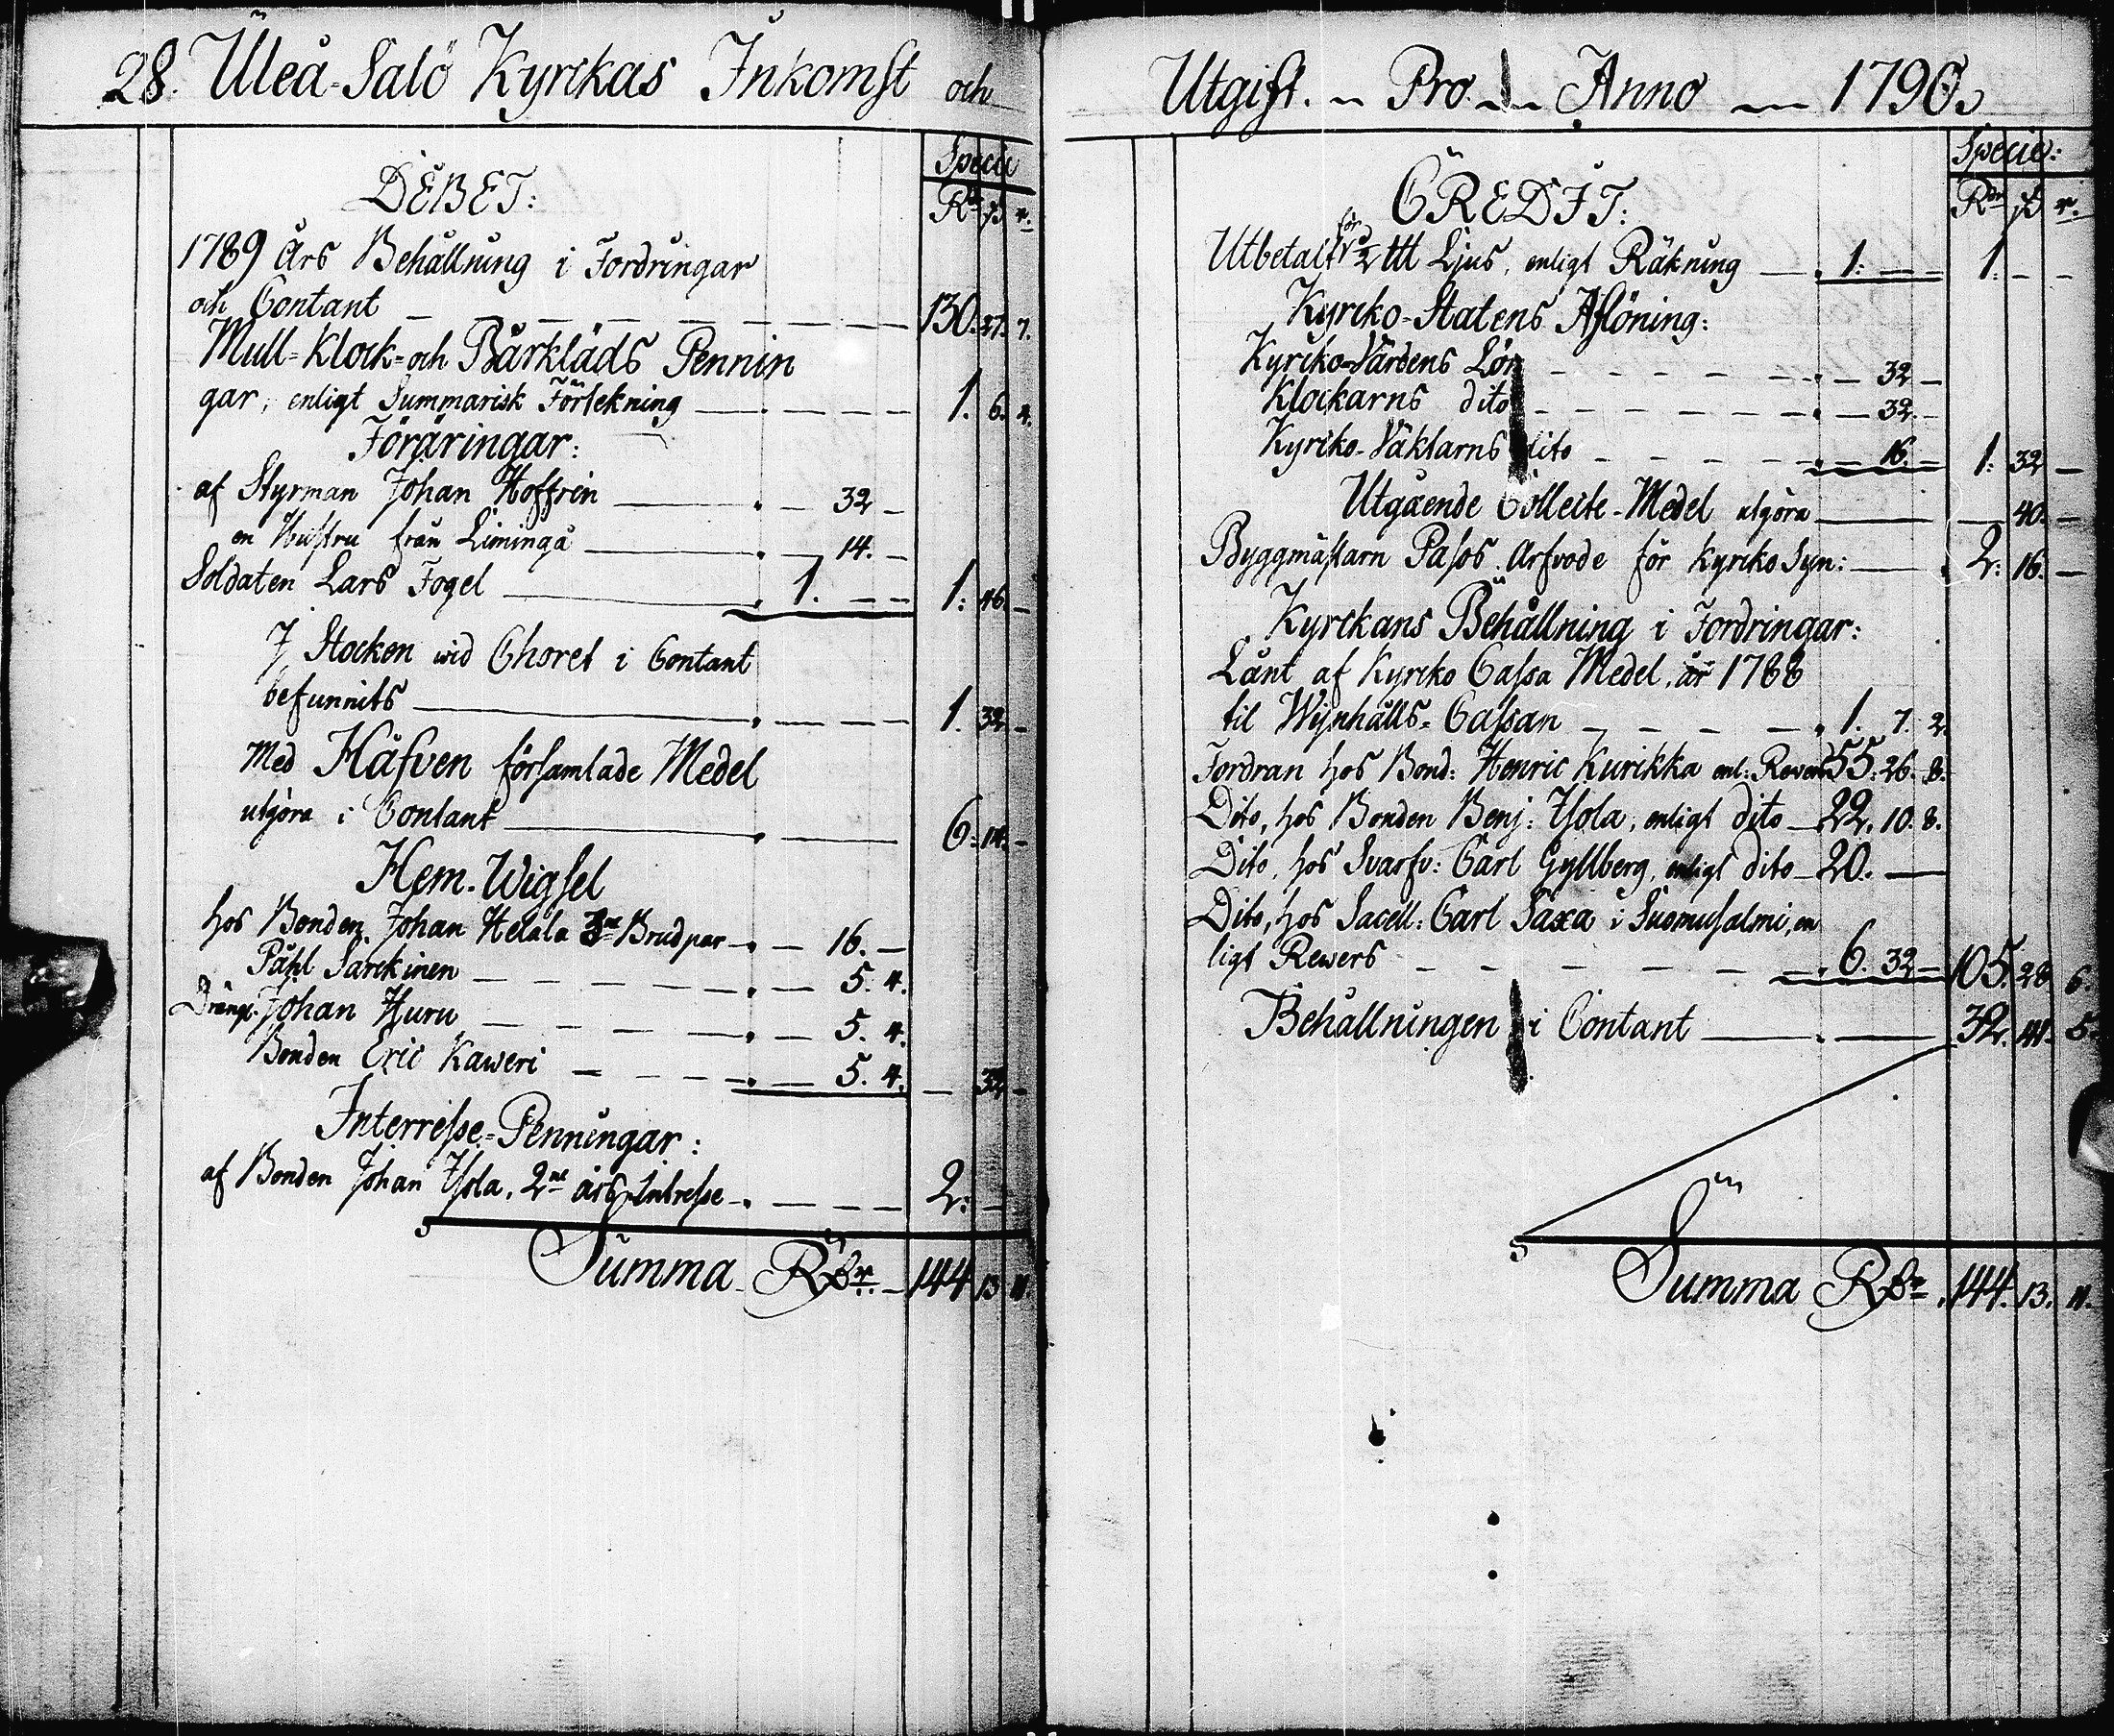 28. Uleå-Salö Kyrckas Inkomst och
DEBET:
Specie
Rdr ß r.
1789 års Behållning i Fordringar
och Contant 130. 27. 7.
Mull-Klock- och Bårkläds Pennin
gar, enligt Summarisk Förtekning 1. 6. 4.
Föräringar:
af Styrman Johan Hoffrin 32
en Hustru från Limingå 14.
Soldaten Lars Fogel 1. 1: 46
I Stocken wid Choret i Contant
befunnits 1. 32
Med Håfven församlade Medel
utgöra i Contant 6: 14.
Hem-Wigsel
hos Bonden Johan Helala 3ne Brudpar 16.
Påhl Sarckinen 5. 4.
Dräng. Johan Huru 5. 4.
Bonden Eric Kaweri 5. 4. 32
Interresse-Penningar:
af Bonden Johan Ysola, 2ne års Intresse 2:
Summa Rdr 144 13 11.
Utgift. Pro Anno 1790.
CREDIT:
Specie:
Rdr ß r.
Utbetalt för ½ ttt Ljus, enligt Räkning 1: 1:
Kyrcko-Statens Aflöning:
Kyrcko-Värdens Lön 32
Klockarns dito 32.
Kyrcko-Väktarns dito 16. 1: 32
Utgående Collecte-Medel utgöra 40.
Byggmästarn Pasos Arfvode för Kyrcko Syn: 2: 16.
Kyrckans Behållning i Fordringar:
Länt af Kyrcko Cassa Medel, år 1788
til Wijnhålls-Cassan 1. 7. 2
Fordran hos Bond: Henric Kurikka enl: Revers 55. 26. 8.
Dito, hos Bonden Benj: Ysola, enligt dito 22. 10. 8.
Dito, hos Svarfv: Carl Gyllberg, enligt dito 20.
Dito, hos Sacell: Carl Saxa i Suomusalmi, en
ligt Rewers 6. 32 105. 28 6.
Behållningen i Contant 32. 41. 5.
Summa Rdr 144. 13. 11.